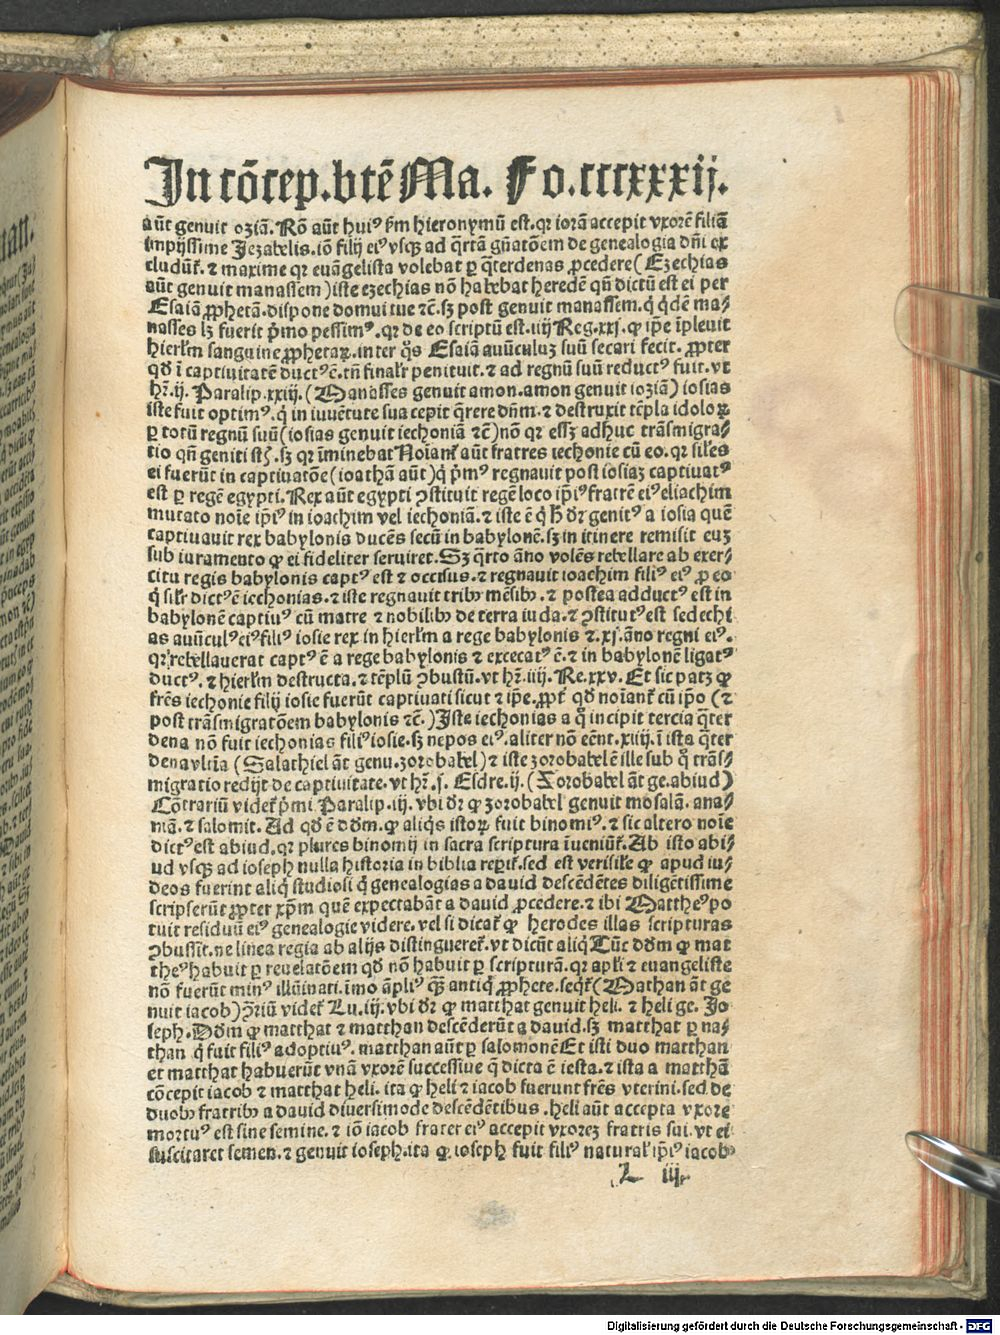 In cõcep. btẽ Ma. Fo. cccxxxij.
aũt genuit oziã. Rõ aũt huiꝰ ẜm hieronymũ est. qꝛ ioꝛã accepit vxoꝛẽ filiã
impijssime Jezabelis. iõ filij eiꝰ vsqꝫ ad q̃rtã gñatõem de genealogia dñi ex
cludũt᷑. ⁊ maxime qꝛ euãgelista volebat ꝑ q̃terdenas ꝓcedere (Ezechias
aũt genuit manassem) iste ezechias nõ habebat heredẽ qñ dictũ est ei per
Esaiã ꝓphetã. dispone domui tue ⁊c̃. sꝫ post genuit manassem. q̇ q̇dẽ ma⸗
nasses lꝫ fuerit p̃mo pessimꝰ. qꝛ de eo scriptũ est. iiij Reg. xxj. ꝙ ip̃e ĩpleuit
hierl̃m sanguine ꝓphetaꝝ. inter q̊s Esaiã auũculuꝫ suũ secari fecit. ꝓpter
qđ ĩ captiuitatẽ ductꝰ ẽ. tñ finalr̃ penituit. ⁊ ad regnũ suũ reductꝰ fuit. vt
hr̃. ij. Paralip. xxiij. (Manasses genuit amon. amon genuit ioziã) iosias
iste fuit optimꝰ. q̇ in iuuẽtute sua cepit q̃rere dñm. ⁊ destruxit tẽpla idoloꝝ
ꝑ totũ regnũ suũ (iosias genuit iechoniã ⁊c̃) nõ qꝛ essꝫ adhuc trãsmigra⸗
tio qñ geniti st̃. sꝫ qꝛ ĩminebat Noĩant᷑ aũt fratres iechonie cũ eo. qꝛ sil̃es
ei fuerũt in captiuatõe (ioathã aũt) q̇ p̃mꝰ regnauit post iosiaꝫ captiuatꝰ
est ꝑ regẽ egypti. Rex aũt egypti ꝯstituit regẽ loco ip̃iꝰ fratrẽ eiꝰ eliachim
mutato noĩe ip̃iꝰ in ioachim vel iechoniã. ⁊ iste ẽ q̇ h̃ dr̃ genitꝰ a iosia quẽ
captiuauit rex babylonis ducẽs secũ in babylonẽ. sꝫ in itinere remisit euꝫ
sub iuramento ꝙ ei fideliter seruiret. Sꝫ q̃rto ãno volẽs rebellare ab exer⸗
citu regis babylonis captꝰ est ⁊ occisus. ⁊ regnauit ioachim filiꝰ eiꝰ ꝓ eo
q̇ sil̃r dictꝰ ẽ iechonias. ⁊ iste regnauit tribꝰ mẽsibꝰ. ⁊ postea adductꝰ est in
babylonẽ captiuꝰ cũ matre ⁊ nobilibꝰ de terra iuda. ⁊ ꝯstitutꝰ est sedechi
as auũculꝰ eiꝰ filiꝰ iosie rex in hierl̃m a rege babylonis ⁊. xj. ãno regni eiꝰ.
qꝛ rebellauerat captꝰ ẽ a rege babylonis ⁊ excecatꝰ ẽ. ⁊ in babylonẽ ligatꝰ
ductꝰ. ⁊ hierl̃m destructa. ⁊ tẽplũ ꝯbustũ. vt hr̃. iiij. Re. xxv. Et sic patꝫ ꝙ
fr̃es iechonie filij iosie fuerũt captiuati sicut ⁊ ip̃e. ꝓpt᷑ qđ noĩant᷑ cũ ip̃o (⁊
post trãsmigratõem babylonis ⁊c̃.) Iste iechonias a q̊ incipit tercia q̃ter
dena nõ fuit iechonias filiꝰ iosie. sꝫ nepos eiꝰ. aliter nõ eẽnt. xiiij. ĩ ista q̃ter
dena vltĩa (Salathiel ãt genu. zorobabel) ⁊ iste zorobabel ẽ ille sub q̊ trãs⸗
migratio redijt de captiuitate. vt hr̃. j. Esdre. ij. (Zorobabel ãt ge. abiud)
Cõtrariũ videt᷑ p̃mi. Paralip. iij. vbi dr̃ ꝙ zorobabel genuit mosalã. ana⸗
niã. ⁊ salomit. Ad qđ ẽ dđm. ꝙ aliq̇s istoꝝ fuit binomiꝰ. ⁊ sic altero noĩe
dictꝰ est abiud. qꝛ plures binomij in sacra scriptura ĩueniũt᷑. Ab isto abi⸗
ud vsqꝫ ad ioseph nulla historia in biblia reperit᷑. sed est verisil̃e ꝙ apud iu⸗
deos fuerint aliq̇ studiosi q̇ genealogias a dauid descẽdẽtes diligẽtissime
scripserũt ꝓpter xp̃m quẽ expectabãt a dauid ꝓcedere. ⁊ ibi Mattheꝰ po
tuit residuũ eiꝰ genealogie videre. vel si dicat᷑ ꝙ herodes illas scripturas
ꝯbussit. ne linea regia ab alijs distingueret᷑. vt dicũt aliq̇ Tũc dđm ꝙ mat
theꝰ habuit ꝑ reuelatõem qđ nõ habuit ꝑ scripturã. qꝛ apl̃i ⁊ euangeliste
nõ fuerũt minꝰ illũinati. ĩmo ãpliꝰ q̃ꝫ antiq̇ ꝓphete. seqt᷑ (Mathan ãt ge
nuit iacob) ꝯr̃iũ videt᷑ Lu. iij. vbi dr̃ ꝙ matthat genuit heli. ⁊ heli ge. Jo
seph. Dđm ꝙ matthat ⁊ matthan descẽderũt a dauid. sꝫ matthat ꝑ na⸗
than q̇ fuit filiꝰ adoptiuꝰ. matthan aũt ꝑ salomonẽ Et isti duo matthan
et matthat habuerũt vnã vxorẽ successiue q̃ dicta ẽ iesta. ⁊ ista a matthã
cõcepit iacob ⁊ matthat heli. ita ꝙ heli ⁊ iacob fuerunt fr̃es vterini. sed de
duobꝰ fratribꝰ a dauid diuersimode descẽdẽtibus. heli aũt accepta vxore
mortuꝰ est sine semine. ⁊ iõ iacob frater eiꝰ accepit vxoreꝫ fratris sui. vt ei
suscitaret semen. ⁊ genuit ioseph. ita ꝙ ioseph fuit filiꝰ natural᷑ ip̃iꝰ iacob
L iij
Digitalisierung gefördert durch die Deutsche Forschungsgemeinschaft - DFG